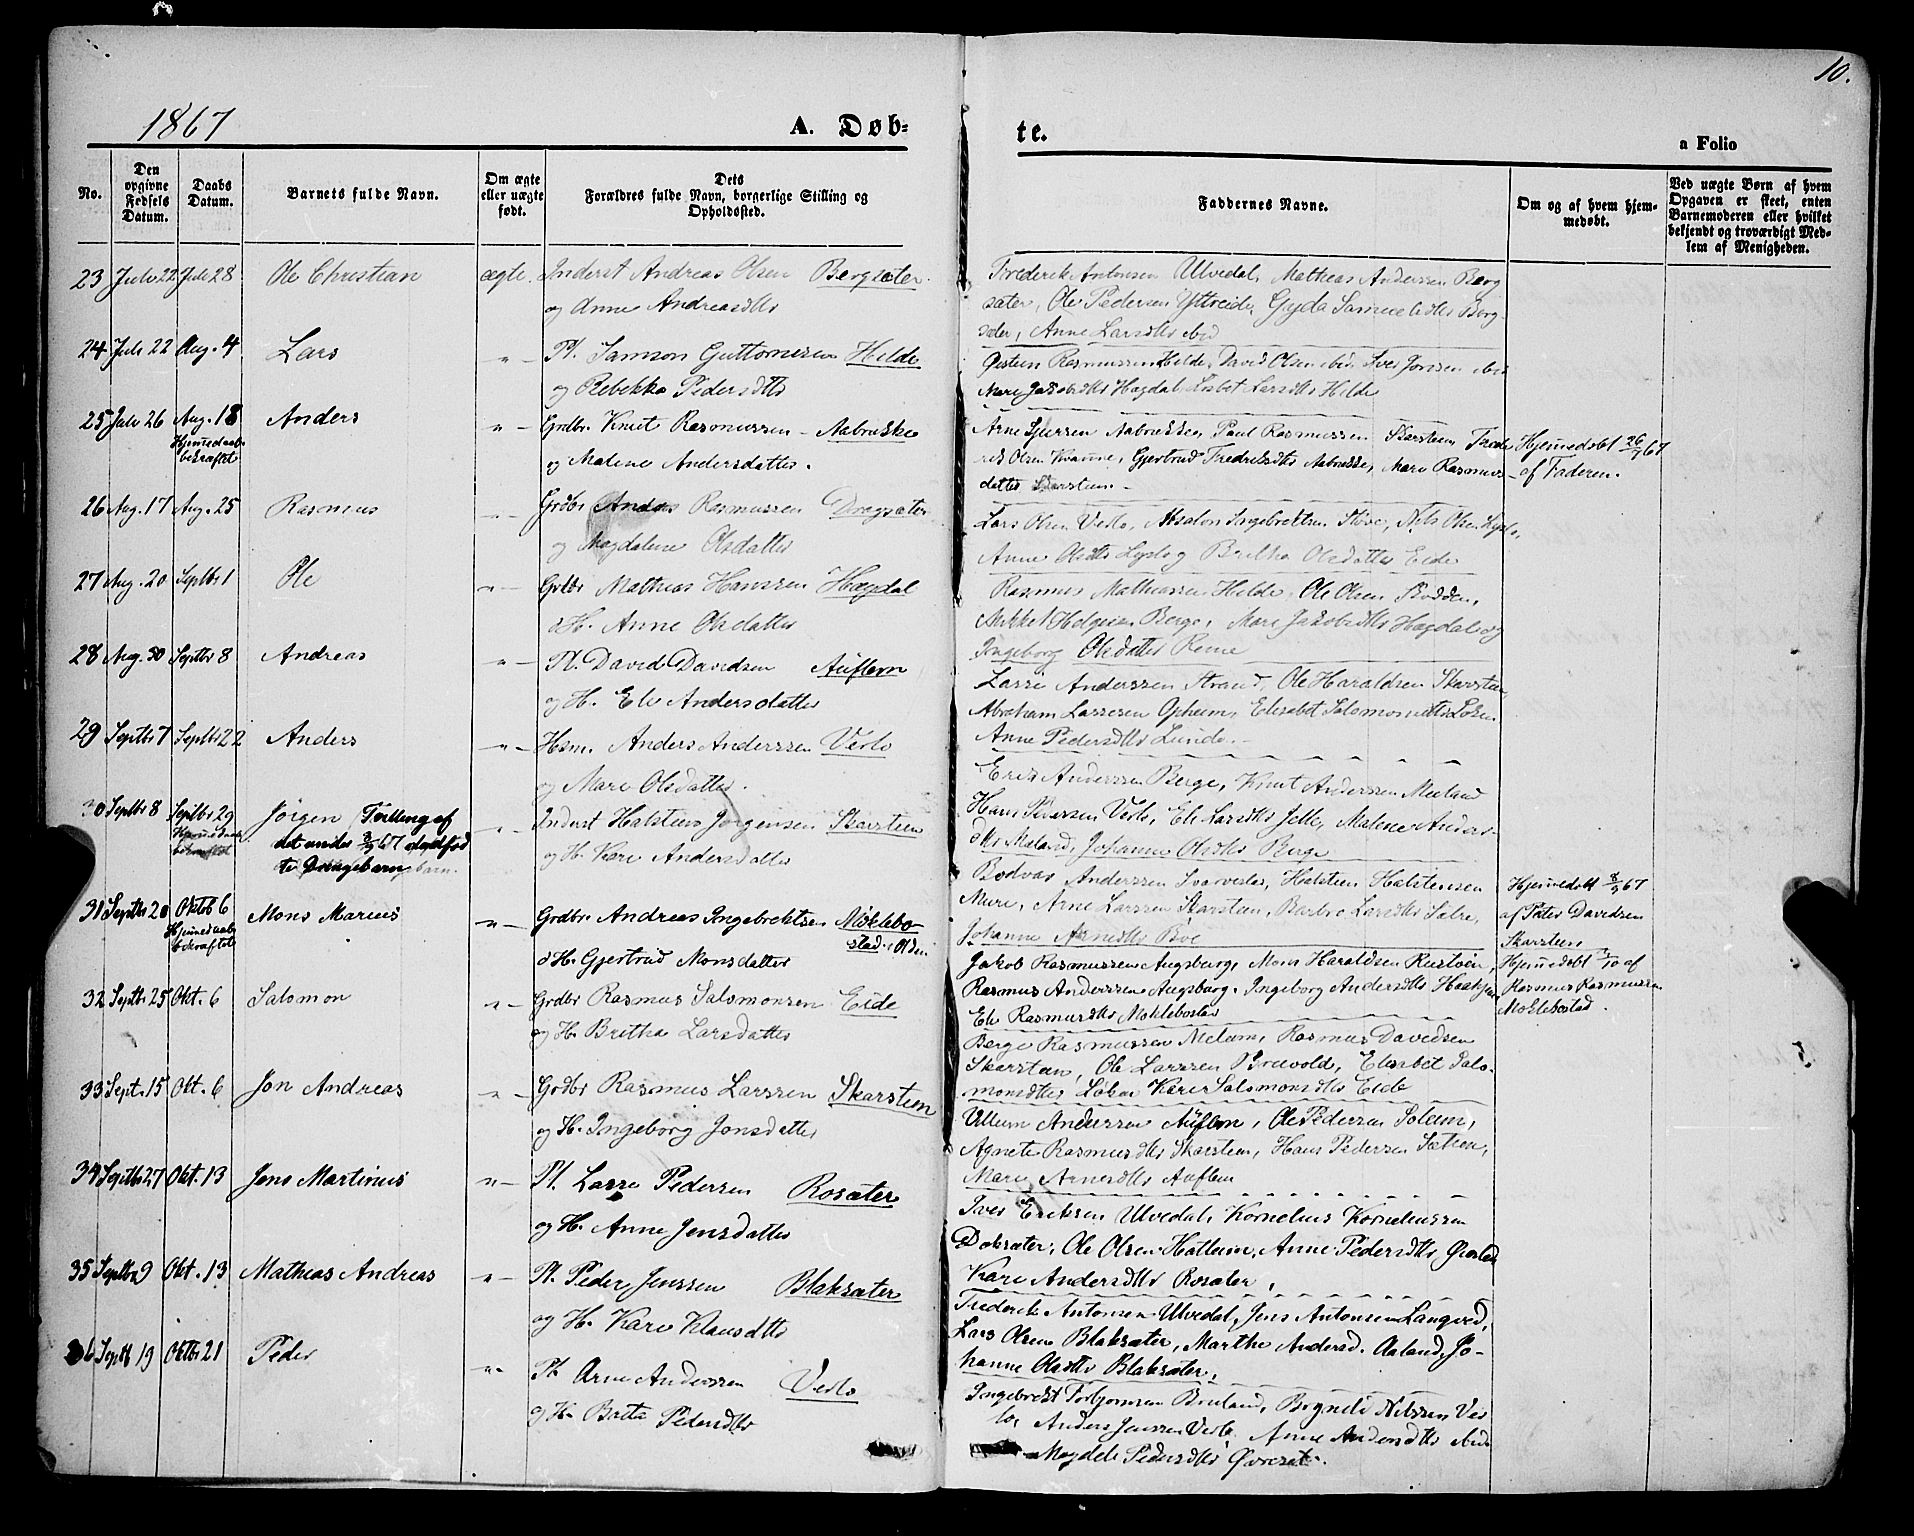 10.
1867
A. Døb-
te.
a Folio
No.
Den opgivne Fødsels Datum.
Daabs Datum.
Barnets fulde Navn.
Om ægte eller uægte født.
Dets Forældres fulde Navn, borgerlige Stilling og Opholdssted.
Faddernes Navne.
Om og af hvem hjemmedøbt.
Ved uægte Børn af hvem Opgaven er skeet, enten Barnemoderen eller hvilket bekjendt og troværdigt Medlem af Menigheden.
23 Juli 22 Juli 28 Ole Christian ægte. Inderst Andreas Olsen Bergsæter.
og Anne Andreasdtts
Frederik Antonsen Ulvedal, Mathias Anderssen Berg
sæter, Ole Pedersen Yttreide, Gyda Samuelsdtts Berg-
sæter, Anne Larsdtts ibid
24 Juli 22 Aug. 4 Lars " Pl. Samson Guttormsen Hilde
og Rebekka Pedersdtts
Øistein Rasmussen Hilde, David Olsen ibid, Iver Jonsen ibid
Mari Jakobsdtts Hægdal, Lisbet Larsdtts Hilde
25 Juli 26 Aug. 18 Anders " Grdbr. Knut Rasmussen - Aabrekke
Hjemmedaab
bekræftet
og Malene Andersdatter.
Arne Sjursen Aabrekke, Paul Rasmussen Skarstein, Frede
rik Olsen Kvamme, Gjertrud Fredriksdtts Aabrekke, Mari Rasmus-
datter Skarstein.
Hjemmedøbt 26/7 67
af Faderen.
26 Aug. 17 Aug. 25 Rasmus " Grdbr Anders Rasmussen Dragsæter
og Magdalene Olsdatter
Lars Olsen Verlo, Absalon Ingebrektsen Støve, Nils Olsen Lyslo,
Anne Olsdtts Lyslo og Britha Olsdatter Eide
27 Aug. 20 Septbr 1 Ole " Grdbr Mathias Hanssen Hægdal
o H. Anne Olsdatter
Rasmus Mathiassen Hilde, Ole Olsen Bødden,
Mikkel Helgesen Berge, Mari Jakobsdtts Hægdal og
Ingeborg Olsdatter Renne
28 Aug. 30 Septbr 8 Andreas " Pl. David Davidsen Auflem
og H. Eli Andersdatter
Lasse Anderssen Strand, Ole Haraldsen Skarstein
Abraham Lassesen Opheim, Elisabet Salomonsdtts Løken
Anne Pedersdtts Lunde.
29 Septbr 7 Septbr 22 Anders " Hsm. Anders Anderssen Verlo
og Mari Olsdatter.
Erik Anderssen Berge, Knut Anderssen Meland
Hans Pedersen Verlo, Eli Larsdtts Jelle, Malene Anders-
dtts Meland, Johanne Olsdtts Berge
30 Septbr 8 Septbr 29 Jörgen Tvilling af " Inderst Halstein Jörgensen Skarstein
Hjemmedaab
bekræftet
det under 8/9 67 dødfød
te Drengebarn
og H. Kari Andersdatter
Bødvar Anderssen, Halstein Halstensen
Muri, Arne Larssen Skarstein, Barbro Larsdtts Sætre,
Johanne Arnesdtts Bøe
Hjemmedøbt 8/9 67
af Peter Davidsen
Skarstein
31 Septbr 20 Oktob 6 Mons Marius " Grdbr. Andreas Ingebrektsen Möklebo-
Hjemmedaab
bekræftet
stad i Olden
o H. Gjertrud Monsdatter
Jakob Rasmussen Augsburg, Mons Haraldsen Rustøen,
Rasmus Anderssen Augsburg, Ingeborg Andersdtts
Eli Rasmusdtts Möklebostad
Hjemmedøbt af
Rasmus Rasmussen
Möklebostad.
32 Septbr 25 Okt. 6 Salomon " Grdbr Rasmus Salomonsen Eide
og H. Britha Larsdatter
Berge Rasmussen Melum, Rasmus Davidsen
Skarstein, Ole Larssen Brevold, Elisabet Salo-
monsdtts Løken Kari Salomonsdtts Eide
33 Sept. 15 Okt. 6 Jon Andreas " Grdbr Rasmus Larssen Skarstein
og H. Ingeborg Jonsdatter
Villum Anderssen Auflem, Ole Pedersen Solum,
Agnete Rasmusdtts Skarstein, Hans Pedersen Sætren,
Mari Arnesdtts Auflem
34 Septbr 27 Okt. 13 Jens Martinus " Pl. Lasse Pederssen Rosæter
og H. Anne Jensdatter
Iver Eriksen Ulvedal, Kornelius Korneliussen
Doksæter, Ole Olsen Hatlum, Anne Pedersdtts,
Kari Andersdtts Rosæter,
35 Septbr 9 Okt. 13 Mathias Andreas " Pl. Peder Jenssen Blaksæter
og H. Kari Klausdtts
Frederik Antonsen Ulvedal, Jens Antonsen Langved,
Lars Olsen Blaksæter, Marthe Andersd. Aaland, Jo-
hanne Olsdtts Blaksæter,
36 Septb 19 Oktbr 21 Peder " Pl. Arne Anderssen Verlo
og H. Brita Pedersdtts
Ingebrekt Torbjørnsen Bruland, Nilssen Ver
lo, Anders Jenssen Verlo, Anne Andersdtts ibid
Magdeli Pedersdtts Øvreset.